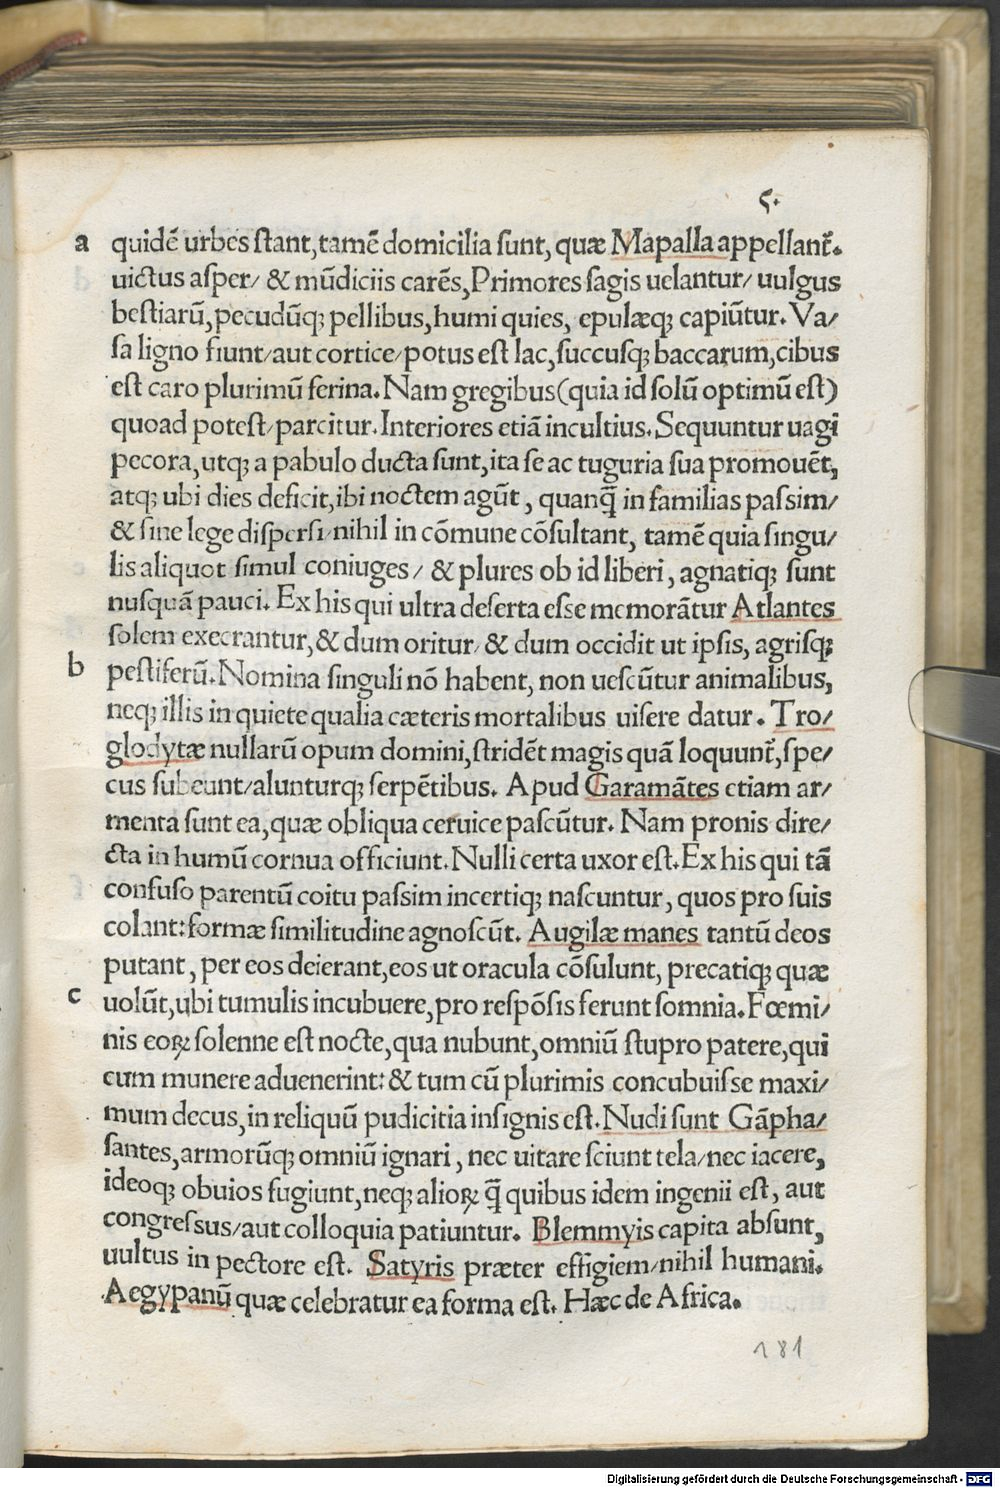 5.
a quidē urbes ſtant,tamē domicilia ſunt, quæ Mapalla appellant᷑.
uictus aſper/ & mūdiciis carēs,Primores ſagis uelantur/ uulgus
beſtiarū,pecudūqꝫ pellibus,humi quies, epulæqꝫ capiūtur. Va/
ſa ligno fiunt/aut cortice/potus eſt lac,ſuccuſqꝫ baccarum,cibus
eſt caro plurimū ferina. Nam gregibus(quia id ſolū optimū eſt)
quoad poteſt/parcitur. Interiores etiā incultius. Sequuntur uagi
pecora,utqꝫ a pabulo ducta ſunt,ita ſe ac tuguria ſua promouēt,
atqꝫ ubi dies deficit,ibi noctem agūt, quanq̄ in familias paſſim/
& ſine lege diſperſi/nihil in cōmune cōſultant, tamē quia ſingu/
lis aliquot ſimul coniuges/ & plures ob id liberi, agnatiqꝫ ſunt
nuſquā pauci. Ex his qui ultra deſerta eſſe memorātur Atlantes
ſolem execrantur,& dum oritur/ & dum occidit ut ipſis, agriſqꝫ
b peſtiferū. Nomina ſinguli nō habent, non ueſcūtur animalibus,
neqꝫ illis in quiete qualia cæteris mortalibus uiſere datur. Tro/
glodytæ nullarū opum domini,ſtridēt magis quā loquunt᷑,ſpe/
cus ſubeunt/alunturqꝫ ſerpētibus. Apud Garamātes etiam ar/
menta ſunt ea,quæ obliqua ceruice paſcūtur. Nam pronis dire/
cta in humū cornua officiunt. Nulli certa uxor eſt. Ex his qui tā
confuſo parentū coitu paſſim incertiqꝫ naſcuntur, quos pro ſuis
colant:formæ ſimilitudine agnoſcūt. Augilæ manes tantū deos
putant, per eos deierant,eos ut oracula cōſulunt, precatiqꝫ quæ
c uolūt,ubi tumulis incubuere,pro reſpōſis ferunt ſomnia. Fœmi/
nis eoꝝ ſolenne eſt nocte,qua nubunt,omniū ſtupro patere,qui
cum munere aduenerint: & tum cū plurimis concubuiſſe maxi/
mum decus,in reliquū pudicitia inſignis eſt. Nudi ſunt Gāpha/
ſantes,armorūqꝫ omniū ignari, nec uitare ſciunt tela/nec iacere,
ideoqꝫ obuios fugiunt,neqꝫ alioꝝ q̄ quibus idem ingenii eſt, aut
congreſſus/aut colloquia patiuntur. Blemmyis capita abſunt,
uultus in pectore eſt. Satyris præter effigiem/nihil humani.
Aegypanū quæ celebratur ea forma eſt. Hæc de Africa.
181
Digitalisierung gefördert durch die Deutsche Forschungsgemeinschaft - DFG